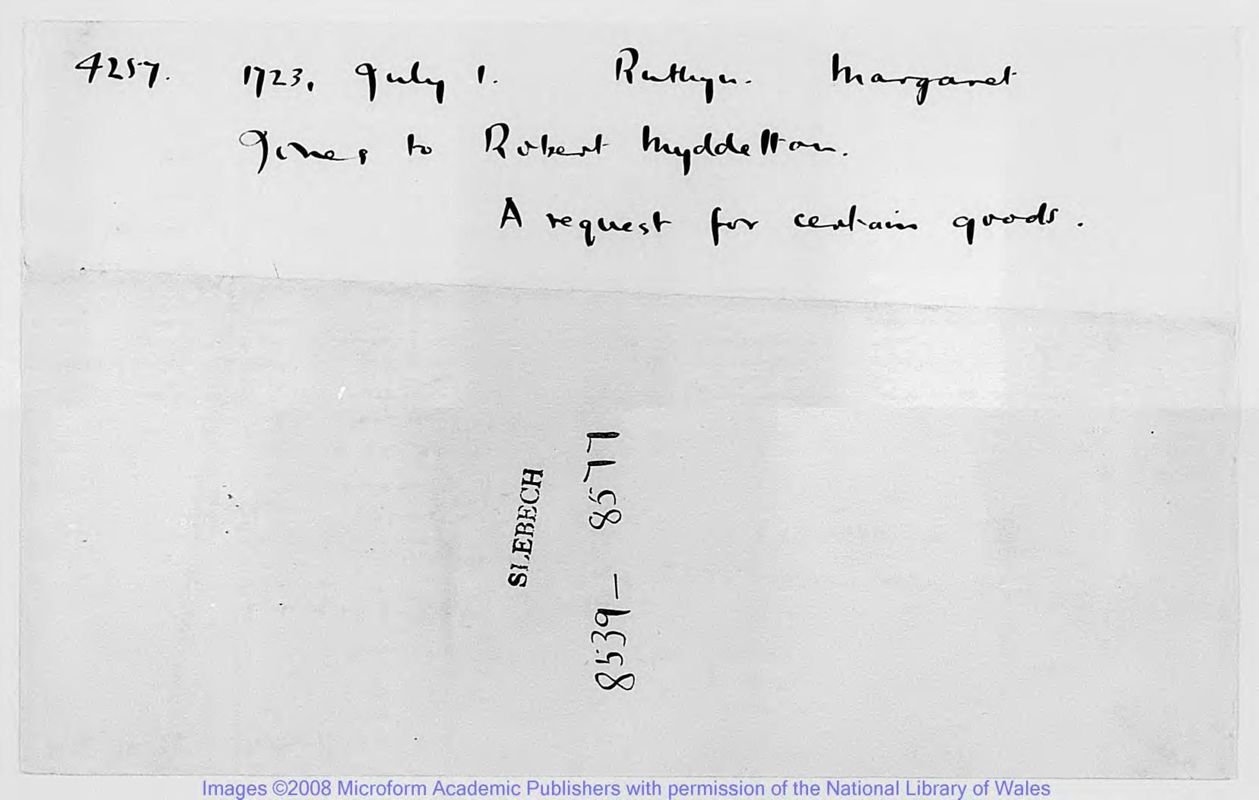 4257. 1723, July 1. Ruthyn. Margaret
Jones to Robert Myddelton.
A request for certain goods.
SLEBECH
8539 - 8577
Images ©2008 Microform Academic Publishers with permission of the National Library of Wales